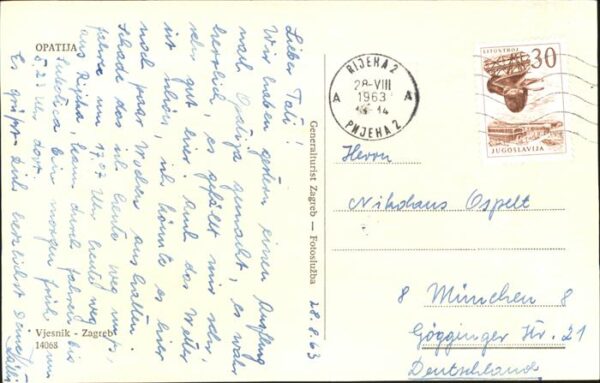 OPATIJA
Lieber Tati!
Wir haben gestern einen Ausflug
nach Opatija gemacht, es wahr
herrlich, es gefällt mir sehr,
sehr gut hier. Auch das Wetter
ist schön, ich könnte es hier
noch paar Wochen aushalten.
Schade das ich heute weg muß,
fahre um 17.27 Uhr heute weg
aus Rijeka, kann durch fahren bis
Subotica bin morgen früh um
5.23 Uhr dort.
Es grüßt Dich herzlichst Deine
28.8.63
Vjesnik - Zagreb
14068
Generalturist Zagreb — Fotoslužba
RIJEKA 2
28-VIII
1963
A A
РИЈЕКА 2
LITOSTROJ
30
JUGOSLAVIJA
Herrn
Nikolaus Ospelt
8 München 8
Gögginger Str. 21
Deutschland